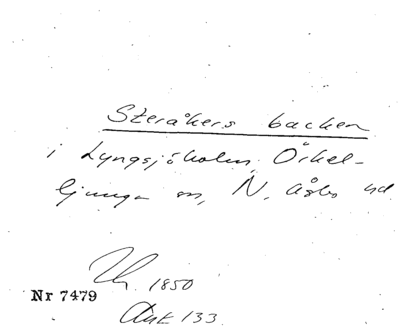 Steråkers backen
i Lyngsjöholm, Örkel-
ljunga sn, N. Åsbo hd
1850
Nr 7479
Ant 133